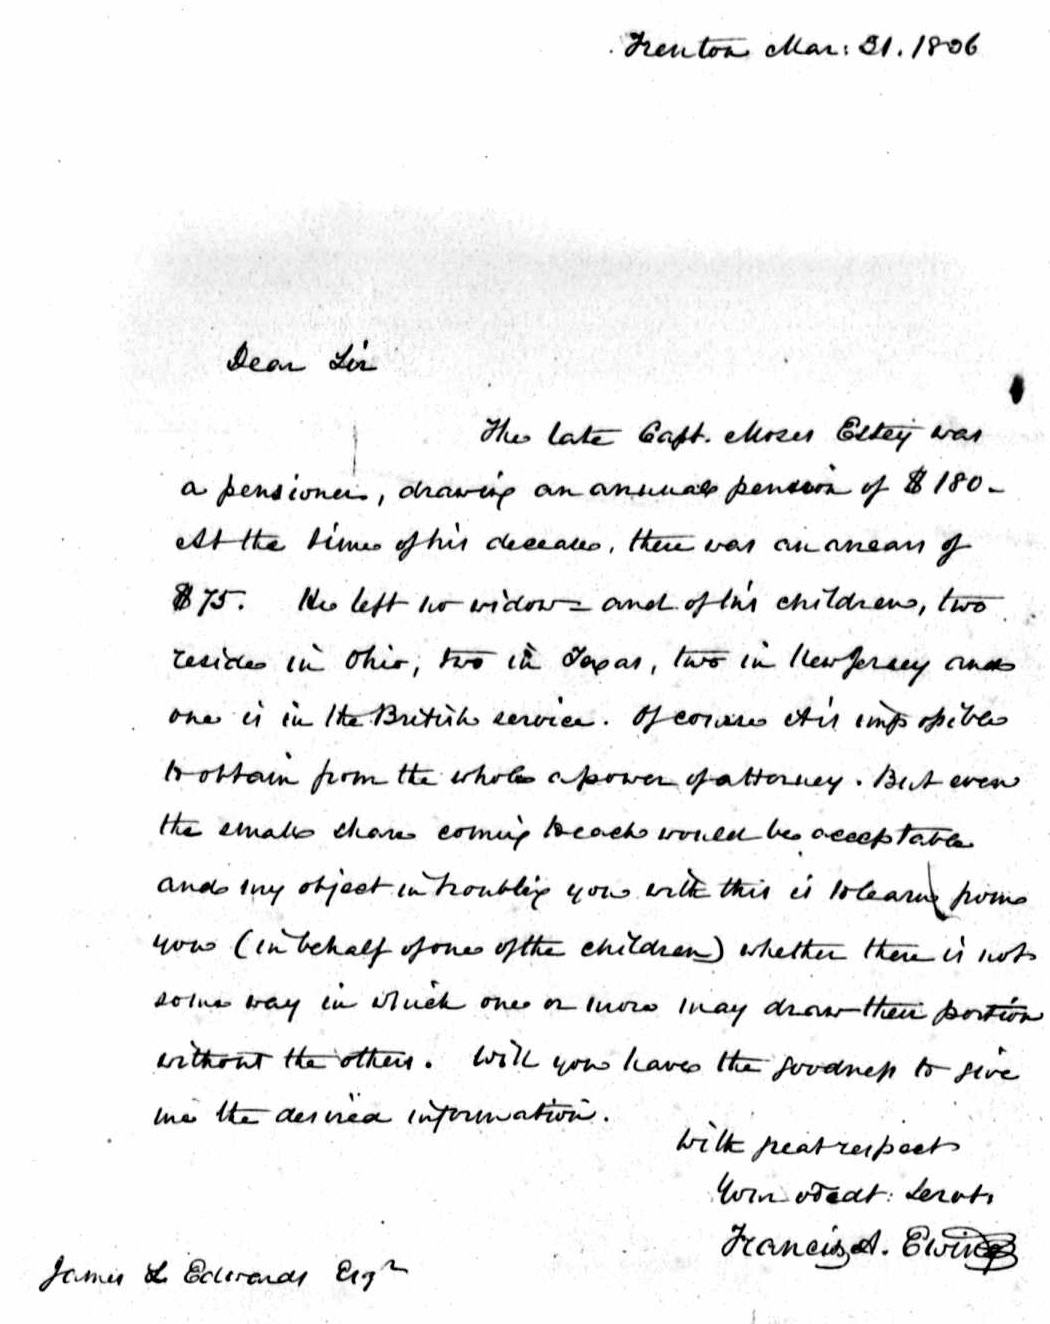 Trenton Mar: 31. 1836
Dear Sir
The late Capt. Moses Estey was
a pensioner, drawing an annual pension of $180-
At the time of his decease, there was an arrears of
$75. He left no widow - and of his children, two
reside in Ohio, two in Texas, two in New Jersey and
one is in the British service. Of course it is impossible
to obtain from the whole a power of attorney. But even
the small share coming to each would be acceptable
and my object in troubling you with this is to learn from
you (in behalf of one of the children) whether there is not
some way in which one or more may draw their portion
without the others. Will you have the goodness to give
me the desired information.
With great respect
Your obedt: Servt.
Francis A. Ewing
James L Edwards Esqr